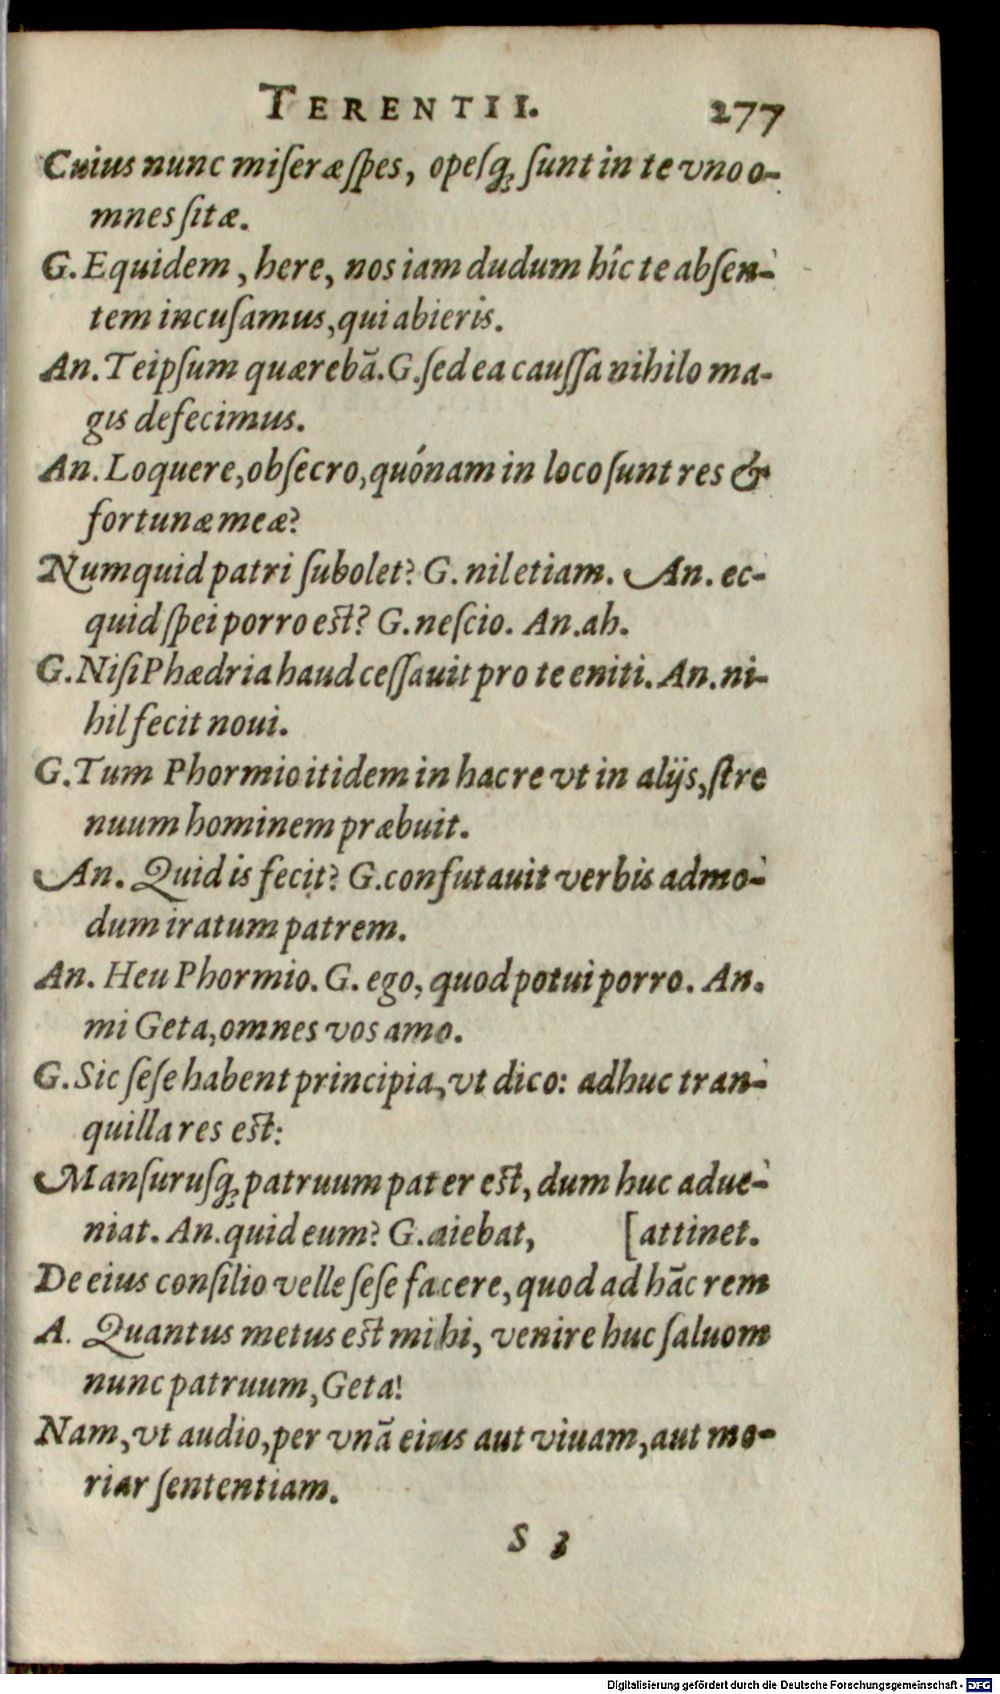 TERENTII. 277
Cuius nunc miseræ spes, opesq́; sunt in te vno o-
mnes sitæ.
G. Equidem, here, nos iam dudum hîc te absen-
tem incusamus, qui abieris.
An. Teipsum quærebã. G. sed ea caussa nihilo ma-
gis defecimus.
An. Loquere, obsecro, quónam in loco sunt res &
fortunæ meæ?
Numquid patri subolet? G. nil etiam. An. ec-
quid spei porro est? G. nescio. An. ah.
G. Nisi Phædria haud cessauit pro te eniti. An. ni-
hil fecit noui.
G. Tum Phormio itidem in hac re vt in alijs, stre
nuum hominem præbuit.
An. Quid is fecit? G. confutauit verbis admo-
dum iratum patrem.
An. Heu Phormio. G. ego, quod potui porro. An.
mi Geta, omnes vos amo.
G. Sic sese habent principia, vt dico: adhuc tran-
quilla res est:
Mansurusq́; patruum pater est, dum huc adue-
niat. An. quid eum? G. aiebat, [attinet.
De eius consilio velle sese facere, quod ad hãc rem
A. Quantus metus est mihi, venire huc saluom
nunc patruum, Geta!
Nam, vt audio, per vnã eius aut viuam, aut mo-
riar sententiam.
S 3
Digitalisierung gefördert durch die Deutsche Forschungsgemeinschaft - DFG